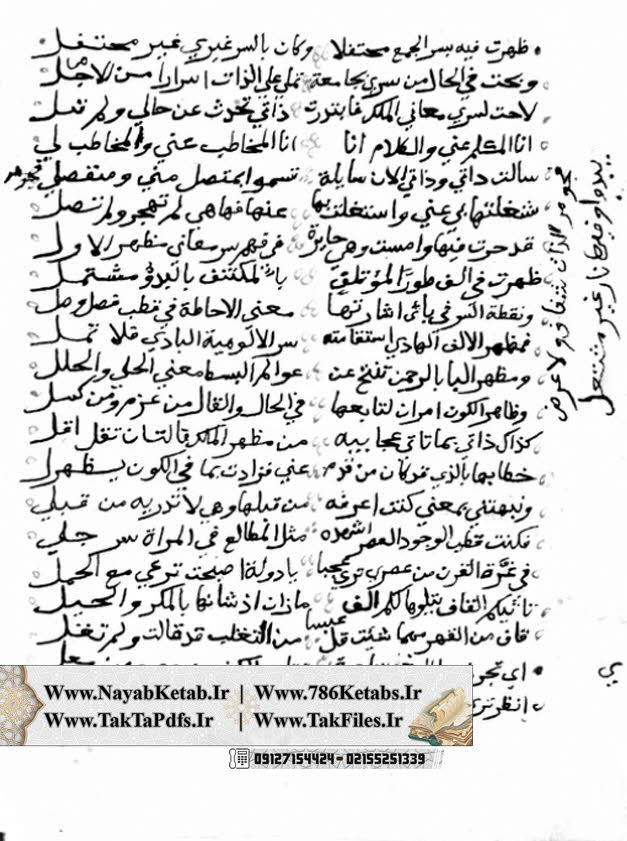 ظهرت فيه بسر الجمع محتفلا وكان بالسر غيري غير محتفل
وبحت في الحال من سري بجامعة تملي علي الذات اسرارا من الاجل
لاحت لسري معاني الملك فابتدرت ذاتي تحدث عن حالي ولم تفل
انا المكلم عني والكلام انا انا المخاطب عني والمخاطب لي
سالت ذاتي وذاتي الان سايلة تسموا بمتصل مني ومنفصل
شغلتها بي عني واستغلت بها عنها فها هي لم تهجر ولم تصل
قد حرت فيها وامست وهي حايرة في قهر سر معاني مظهر الاول
ظهرت في الف طورا المؤتلق بالمكتنف بالبدؤ مشتمل
ونقطة السر في بائي اشارتها معني الاحاطة في قطب فصل وصل
فمظهر الالف الهادي استقامته سر الالوهية البادي فلا تمل
ومظهر البا بالرحمن تفتح عن عوالم البسط معني الحلي والحلل
وظاهر الكون امران لتابعها في الحال والقال من عزم ومن كسل
كذاك ذاتي بما تاتي عجايبه من مظهر الملك قالت ان تقل اقل
خطابها بالذي قد كان من قدم عني فزادت بما في الكون يظهر لي
ونبهتني بمعني كنت اعرفه من قبلها وهي لا تدريه من قبلي
فكنت قطب الوجود العصر اشهده مثل المطالع في المراة سر جلي
في غرة القرن من عصري تري عجبا يا دولة اصبحت ترعي مع الحمل
تاتيكم القاف يتلوها لكم الف ماذات اذ شانها بالمكر والحيل
قاف من القهر مهما شيت قل عبسا من التغلب قد قالت ولم تفل
اي تجو
انظر تري
جوهر
جوهر الذات شفاف ولا عرض
يبدوا وفيها نار غير مشتعل
ي
Www.NayabKetab.Ir | Www.786Ketabs.Ir
Www.TakTaPdfs.Ir | Www.TakFiles.Ir
09127154424 - 02155251339